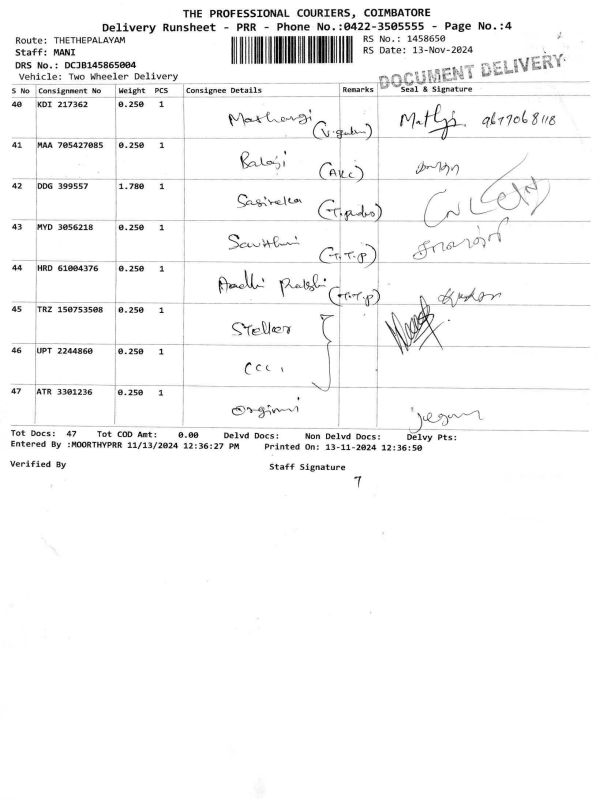 THE PROFESSIONAL COURIERS, COIMBATORE
Delivery Runsheet - PRR - Phone No.:0422-3505555 - Page No.:4
Route: THETHEPALAYAM
RS No.: 1458650
Staff: MANI
RS Date: 13-Nov-2024
DRS No.: DCJB145865004
Vehicle: Two Wheeler Delivery
DOCUMENT DELIVERY
S No Consignment No Weight PCS Consignee Details Remarks Seal & Signature
40 KDI 217362 0.250 1 9677068118
41 MAA 705427085 0.250 1 Balaji (AKC)
42 DDG 399557 1.780 1 Sasireka
43 MYD 3056218 0.250 1 (T.T.P)
44 HRD 61004376 0.250 1 (T.T.P)
45 TRZ 150753508 0.250 1 Steller
46 UPT 2244860 0.250 1
47 ATR 3301236 0.250 1
Tot Docs: 47 Tot COD Amt: 0.00 Delvd Docs: Non Delvd Docs: Delvy Pts:
Entered By :MOORTHYPRR 11/13/2024 12:36:27 PM Printed On: 13-11-2024 12:36:50
Verified By Staff Signature
7